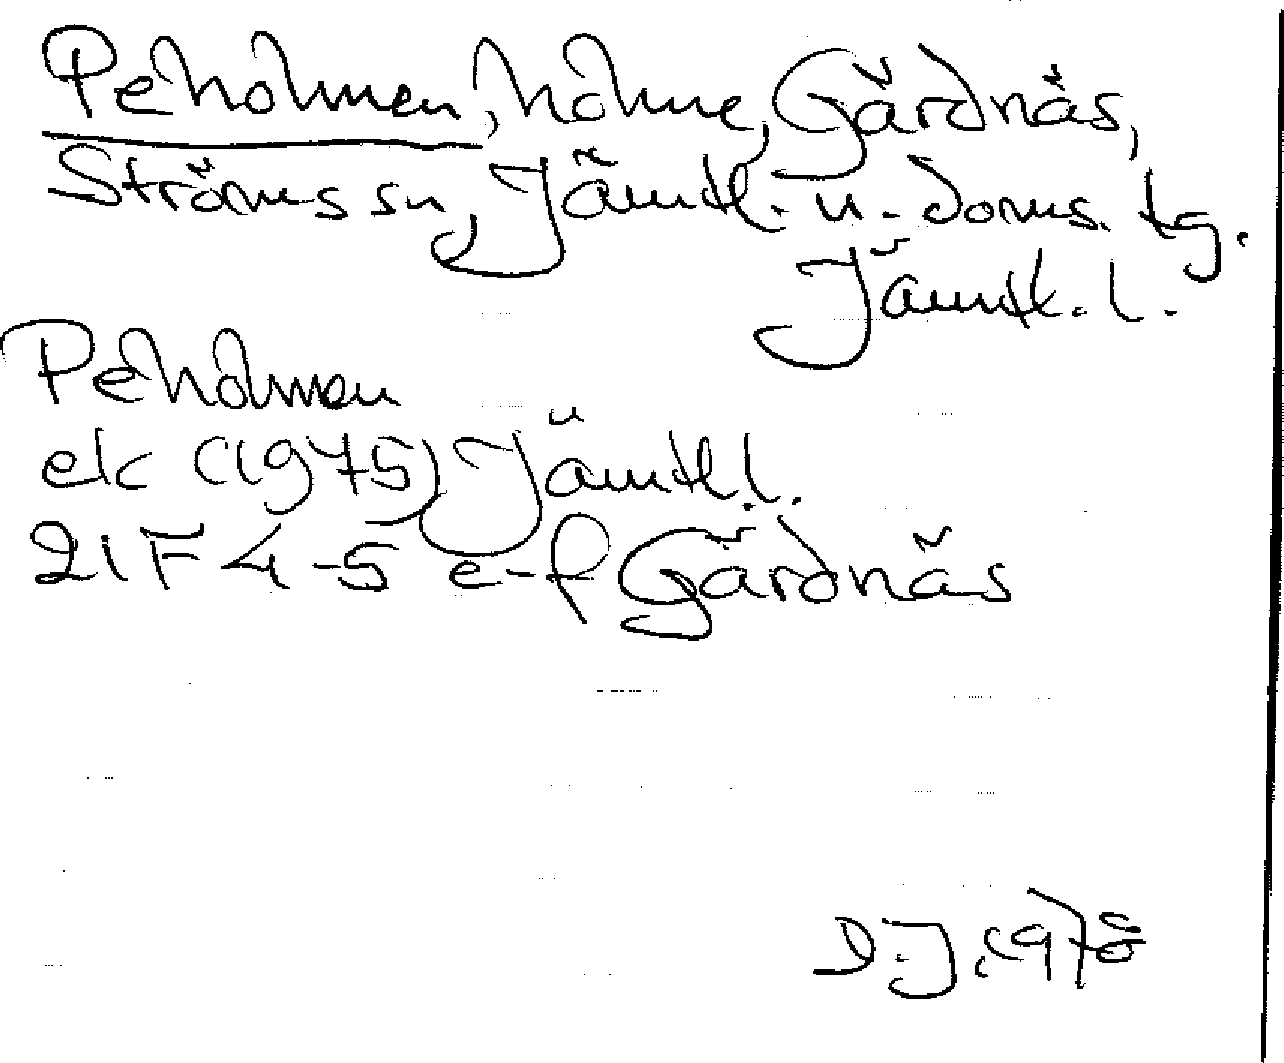 Peholmen, holme, Gärdnäs,
Ströms sn, Jämtl. n. doms. tg.
Jämtl. l.
Peholmen
ek (1975) Jämtl. l.
21F 4-5 e-f Gärdnäs
D.J. 1978